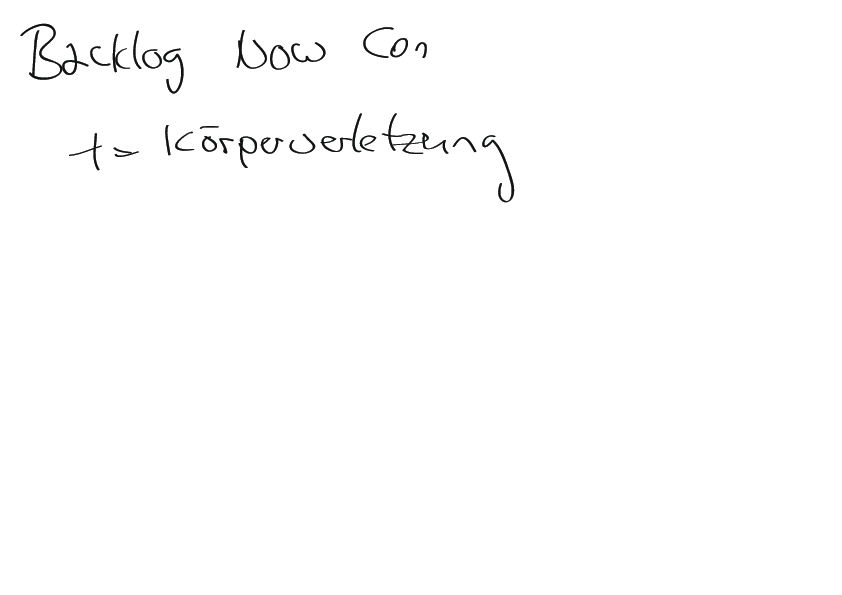 Backlog Now Con
t = Körperverletzung